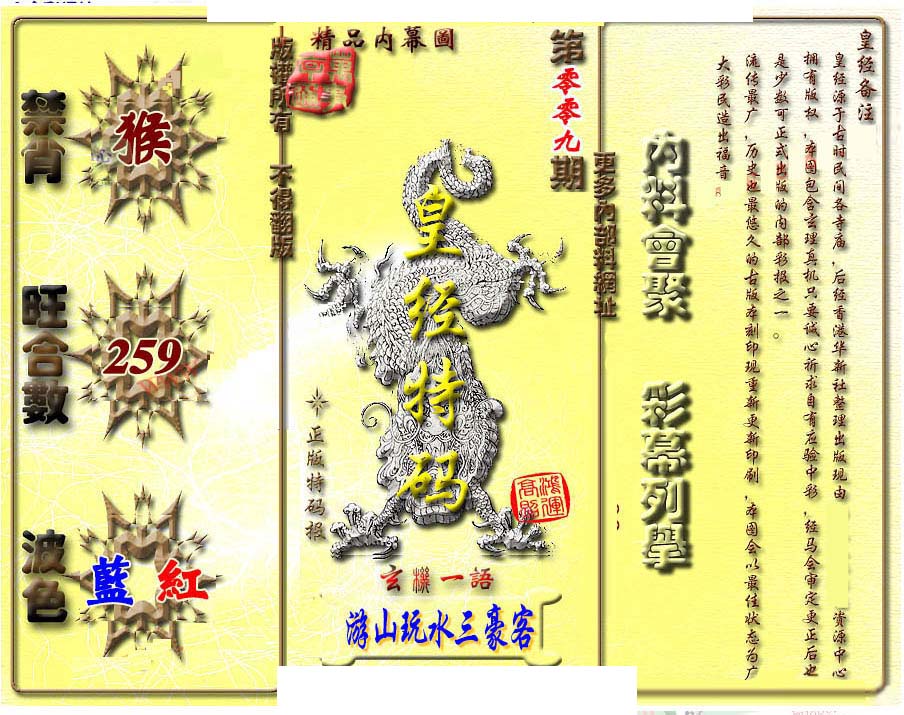 精品内幕圖
版權所有 不得翻版
第零零九期
更多內部料網址
禁肖
猴
旺合數
259
波色
藍 紅
皇经特码
正版特码报
鴻運
高照
玄機一語
游山玩水三豪客
內料會聚
彩幕列舉
皇经备注
皇经源于古时民间各寺庙,后经香港华新社整理出版现由 资源中心
拥有版权,本图包含玄理真机只要诚心祈求自有应验中彩,经马会审定更正后也
是少数可正式出版的内部彩报之一。
流传最广,历史也最悠久的古版本刻印现重新更新印刷,本图会以最佳状态为广
大彩民造出福音